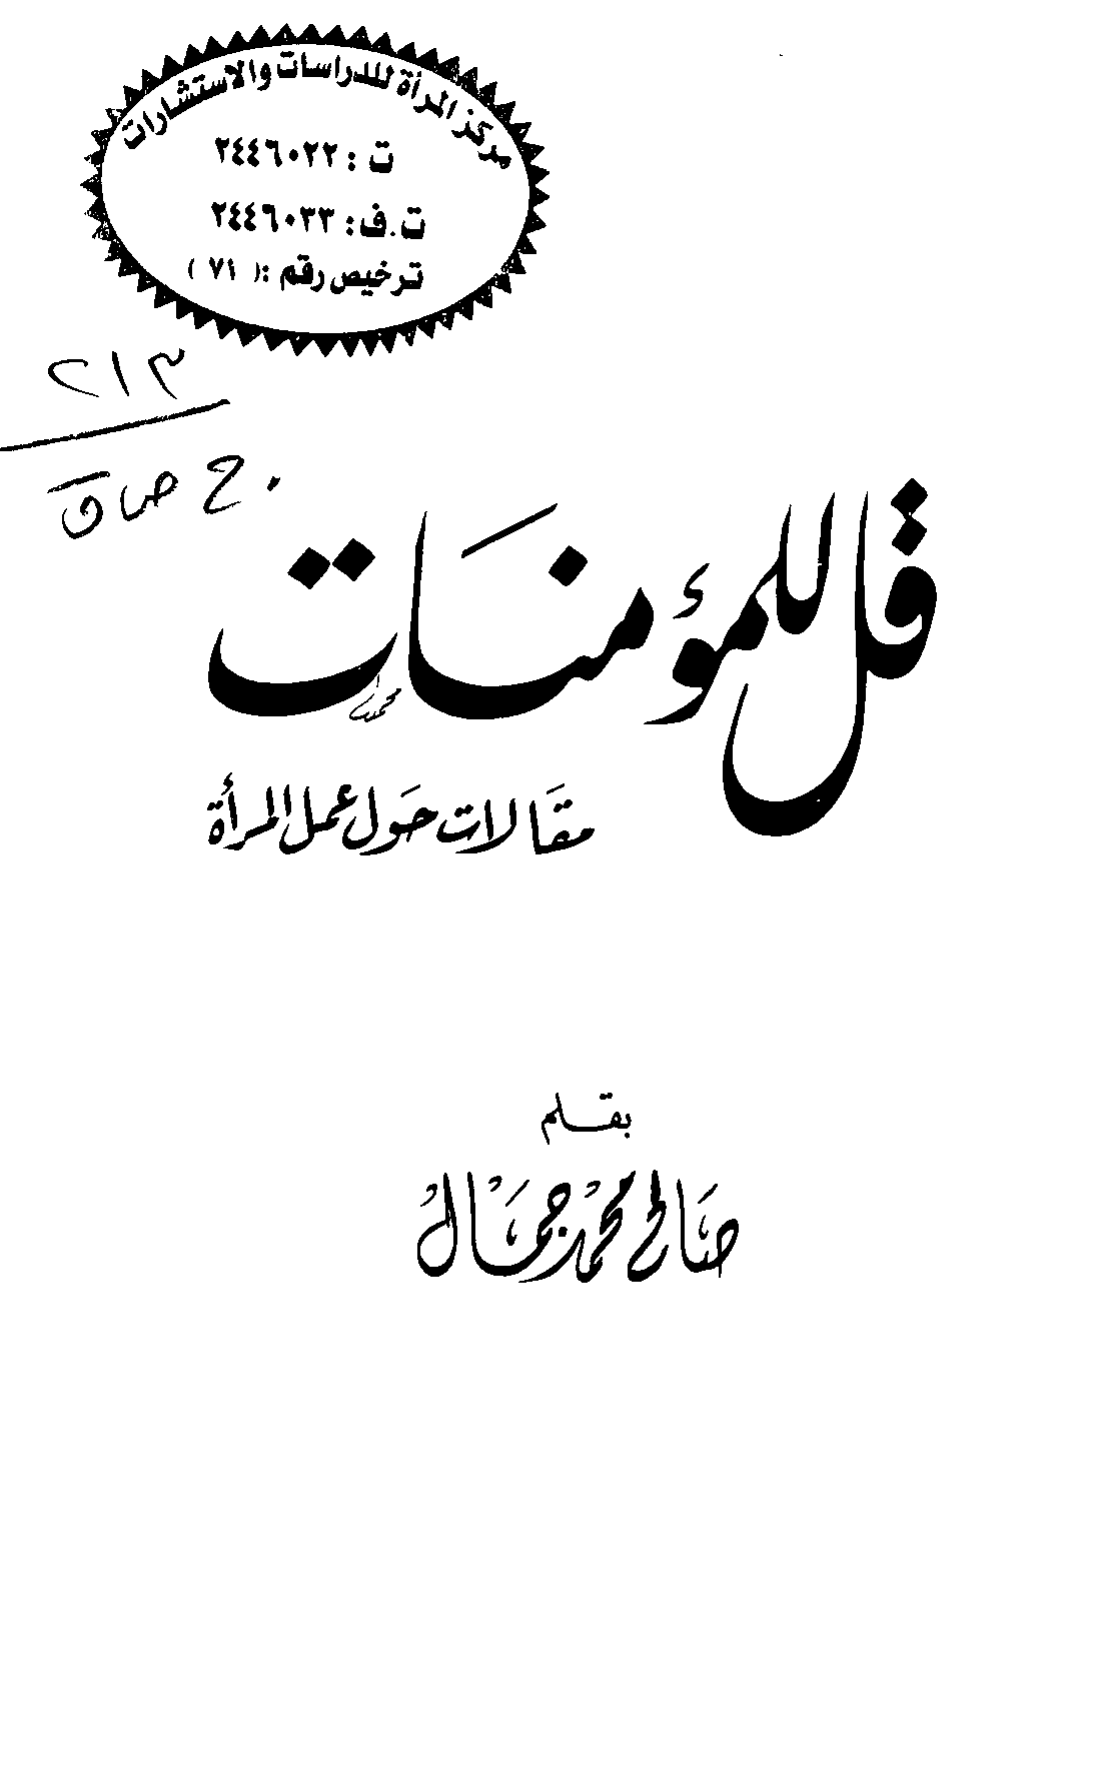 مركز المرأة للدراسات والاستشارات
ت : ٢٤٤٦٠٢٢
ت.ف: ٢٤٤٦٠٣٣
ترخيص رقم :( ٧١ )
٢١٣
قل للمؤمنات
مقالات حول عمل المرأة
بقلم
صالح محمد جمال